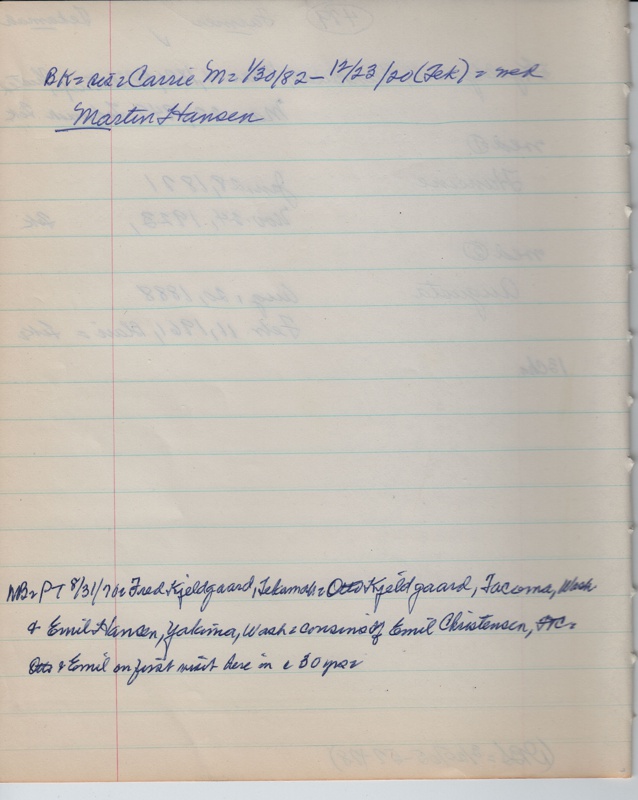 BK = sis = Carrie M = 1/30/82 – 12/23/20 (Tek) = wed
Martin Hansen
NB = PT 8/31/70 = Fred Kjeldgaard, Tekamah = Otto Kjeldgaard, Tacoma, Wash
& Emil Hansen, Yakima, Wash = cousins of Emil Christensen,
Otto & Emil on first visit here in c 50 yrs =